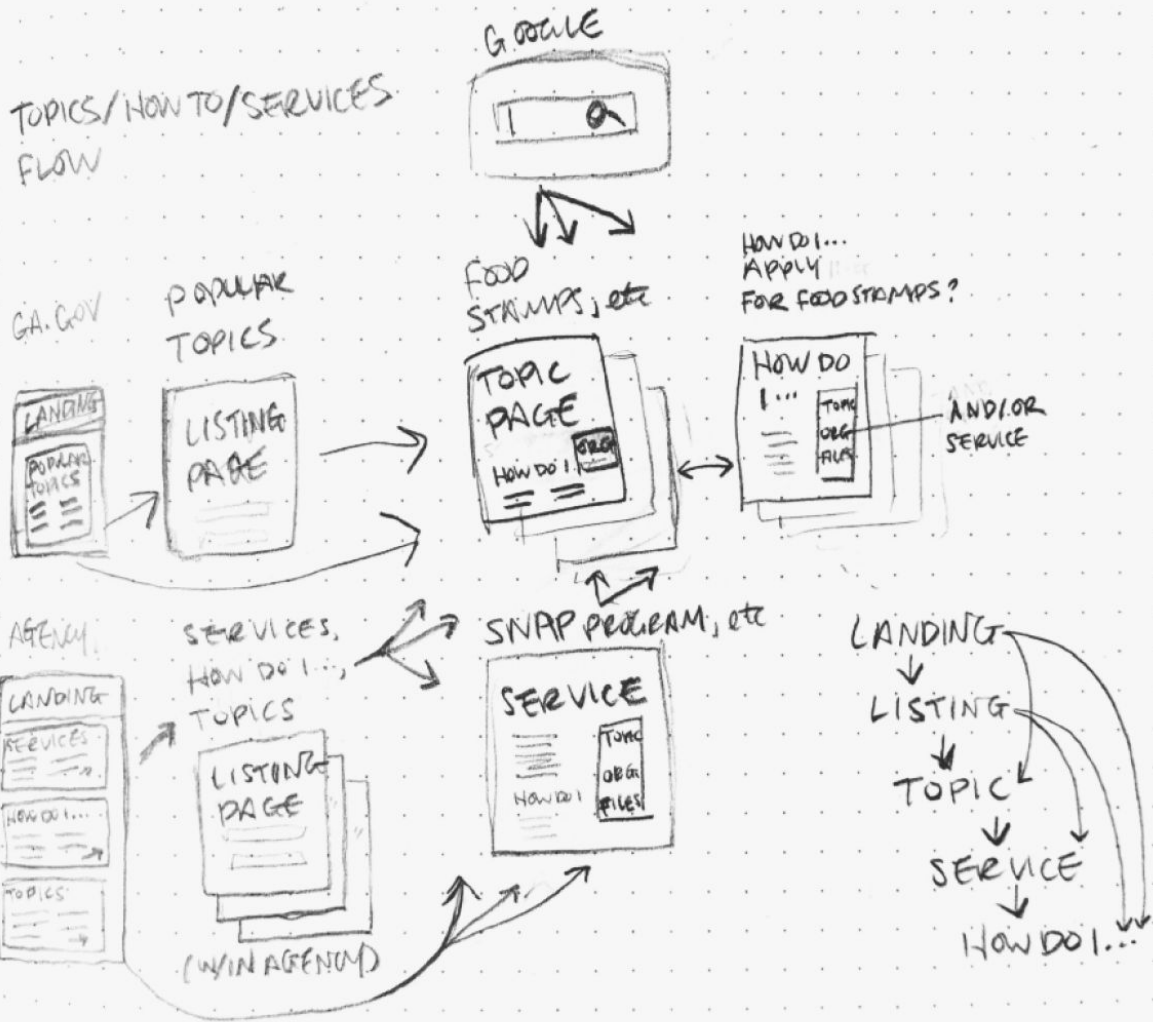 TOPICS/HOW TO/SERVICES
FLOW
GOOGLE
GA.GOV
LANDING
POPULAR
TOPICS
POPULAR
TOPICS
LISTING
PAGE
FOOD
STAMPS, etc
TOPIC
PAGE
ORG
HOW DO I
HOW DO I...
APPLY
FOR FOOD STAMPS?
HOW DO
I...
TOPIC
ORG
FILES
AND/OR
SERVICE
AGENCY
LANDING
SERVICES
HOW DO I...
TOPICS
SERVICES,
HOW DO I...,
TOPICS
LISTING
PAGE
(W/IN AGENCY)
SNAP PROGRAM, etc
SERVICE
HOW DO I
TOPIC
ORG
FILES
LANDING
LISTING
TOPIC
SERVICE
HOW DO I...